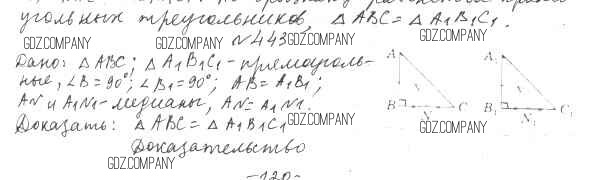 угольных треугольников, △ ABC = △ A1B1C1.
GDZ.COMPANY GDZ.COMPANY GDZ.COMPANY GDZ.COMPANY
№443
Дано: △ ABC; △ A1B1C1 - прямоуголь-
ные, ∠B = 90°; ∠B1 = 90°; AB = A1B1;
AN и A1N1 - медианы, AN = A1N1.
Доказать: △ ABC = △ A1B1C1
GDZ.COMPANY GDZ.COMPANY GDZ.COMPANY
Доказательство
GDZ.COMPANY
A B C
A1 B1 N1 C1